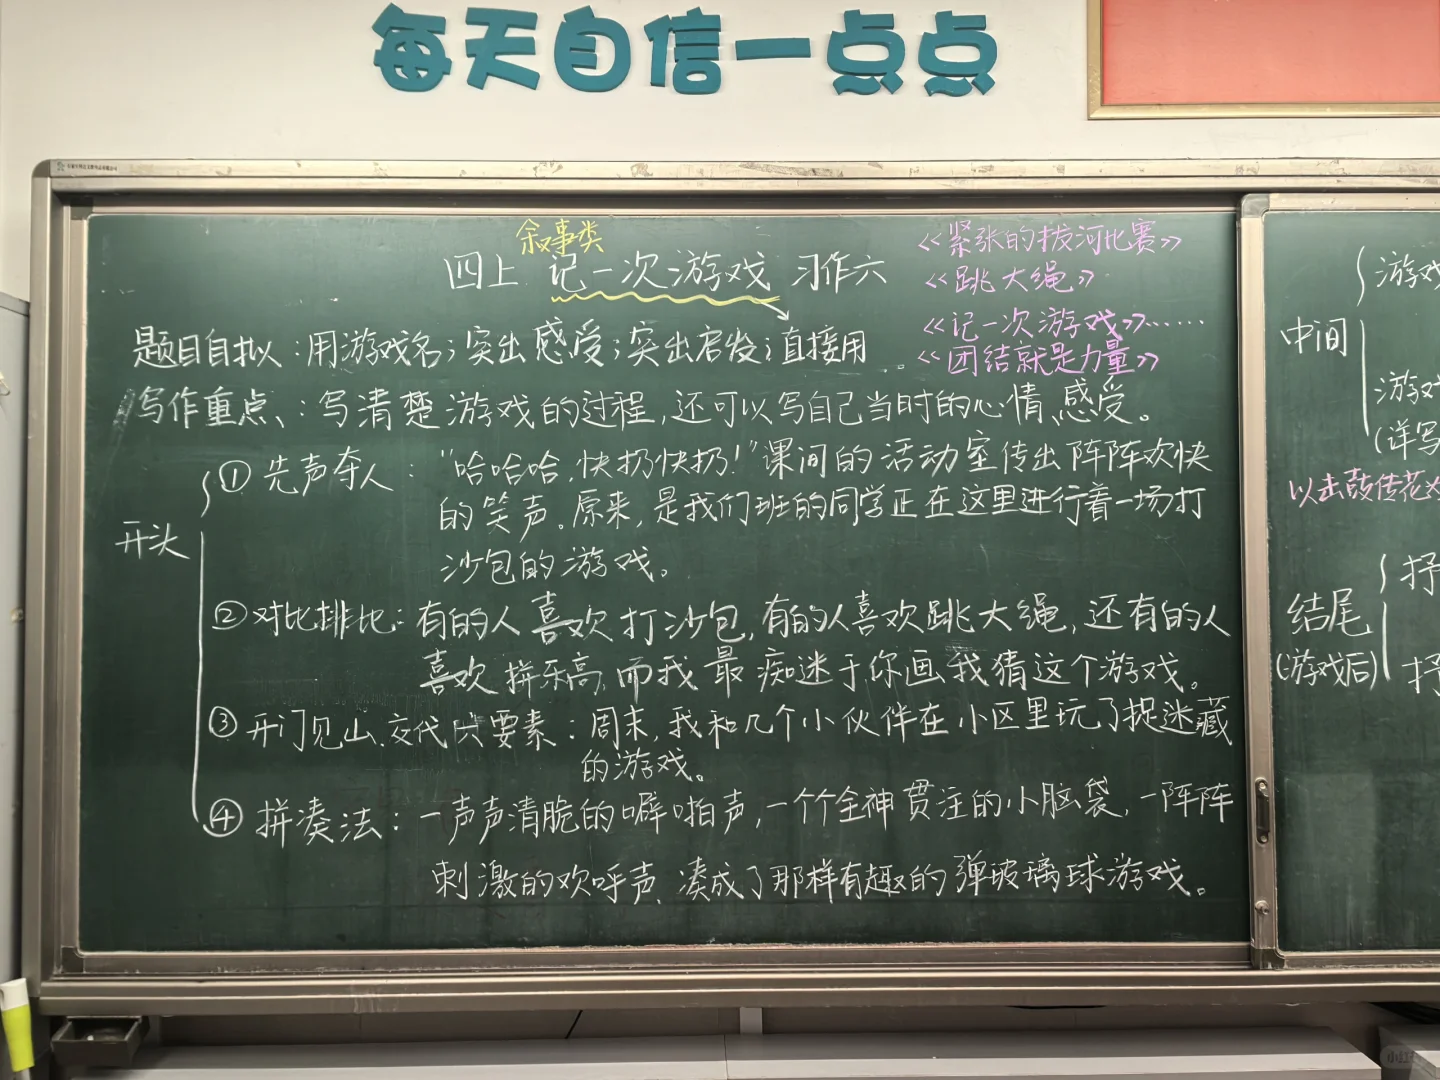 每天自信一点点
叙事类
四上 记一次游戏 习作六
《紧张的拔河比赛》
《跳大绳》
《记一次游戏》……
《团结就是力量》
题目自拟：用游戏名；突出感受；突出启发；直接用。
写作重点：写清楚游戏的过程，还可以写自己当时的心情、感受。
开头
①先声夺人：“哈哈哈，快扔快扔！”课间的活动室传出阵阵欢快
的笑声。原来，是我们班的同学正在这里进行着一场打
沙包的游戏。
②对比排比：有的人喜欢打沙包，有的人喜欢跳大绳，还有的人
喜欢拼乐高，而我最痴迷于你画我猜这个游戏。
③开门见山、交代六要素：周末，我和几个小伙伴在小区里玩了捉迷藏
的游戏。
④拼凑法：一声声清脆的噼啪声，一个个全神贯注的小脑袋，一阵阵
刺激的欢呼声，凑成了那样有趣的弹玻璃球游戏。
中间
游戏
游戏
(详写
以击鼓传花
结尾
(游戏后)
抒
抒